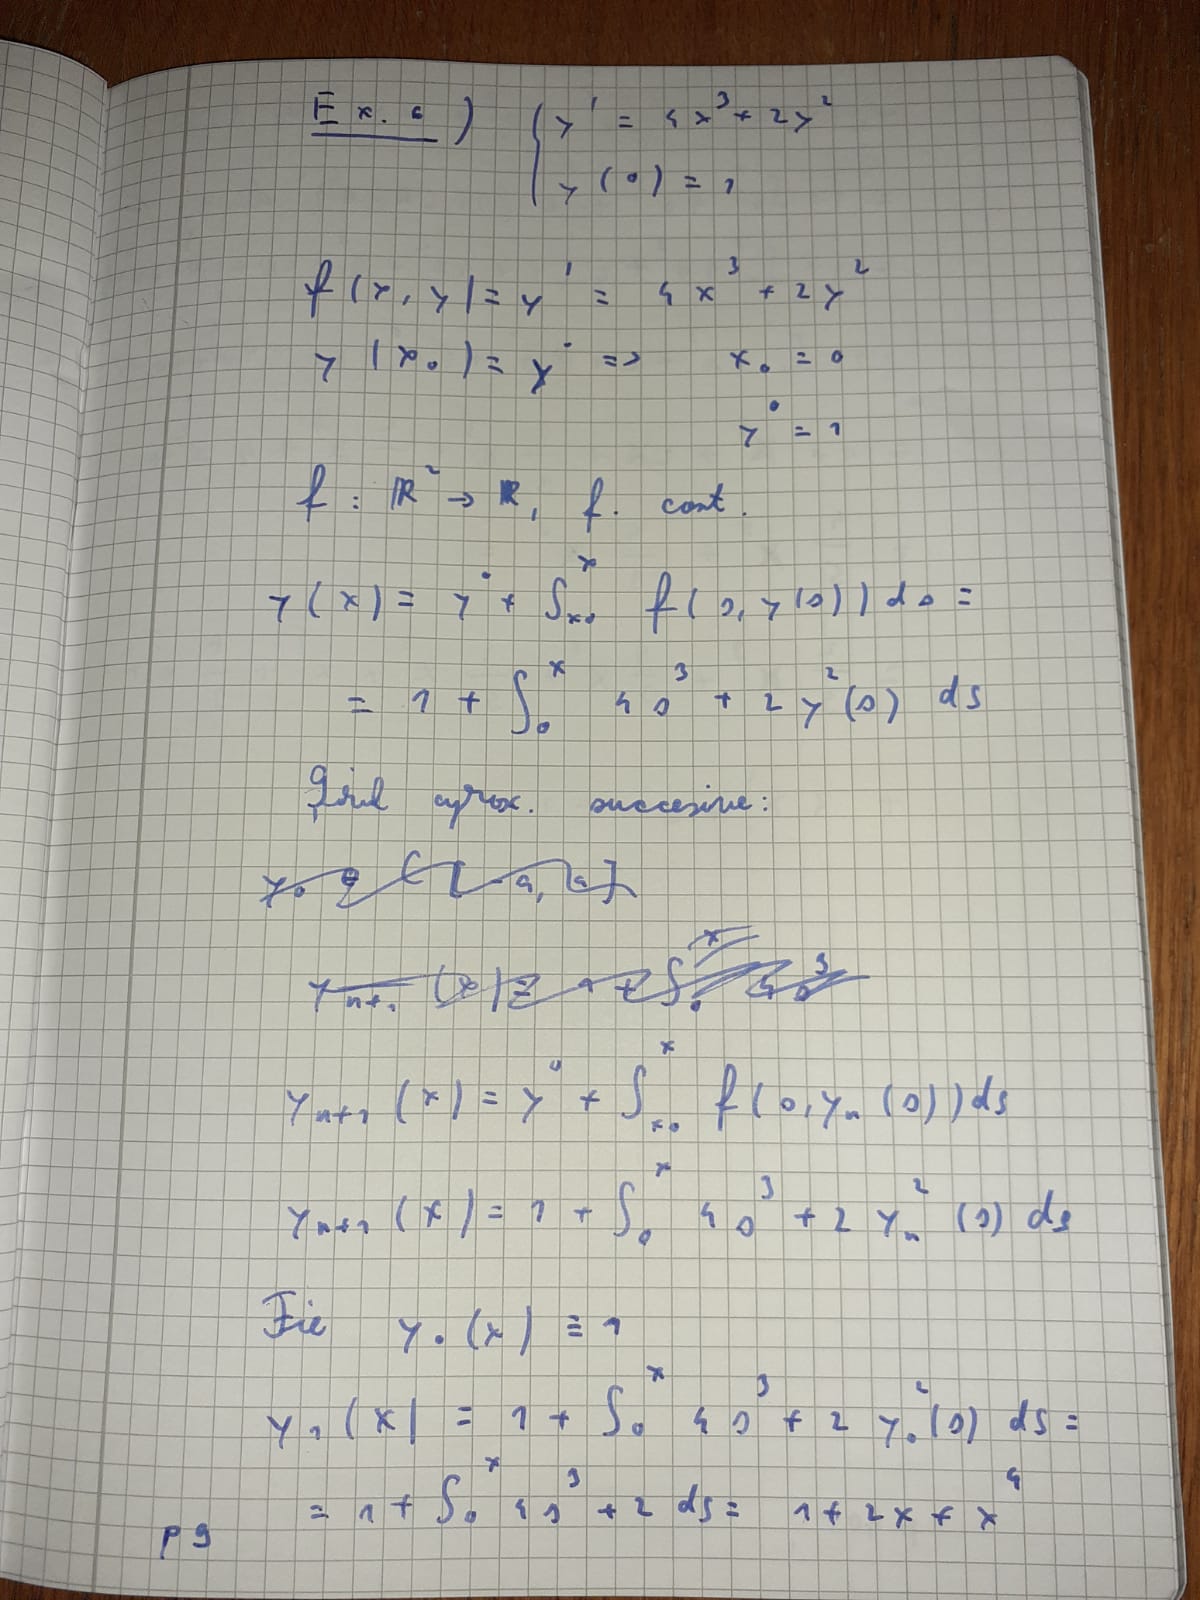 Ex. 6) { y' = 4x³ + 2y²
y(0) = 1
f(x, y) = y' = 4x³ + 2y²
y(x₀) = y⁰ => x₀ = 0
y⁰ = 1
f: ℝ² → ℝ, f. cont.
y(x) = y⁰ + ∫ₓ₀ˣ f(s, y(s)) ds =
= 1 + ∫₀ˣ 4s³ + 2y²(s) ds
Șirul aprox. succesive:
yₙ₊₁(x) = y⁰ + ∫ₓ₀ˣ f(s, yₙ(s)) ds
yₙ₊₁(x) = 1 + ∫₀ˣ 4s³ + 2yₙ²(s) ds
Fie y₀(x) ≡ 1
y₁(x) = 1 + ∫₀ˣ 4s³ + 2y₀²(s) ds =
= 1 + ∫₀ˣ 4s³ + 2 ds = 1 + 2x + x⁴
p9